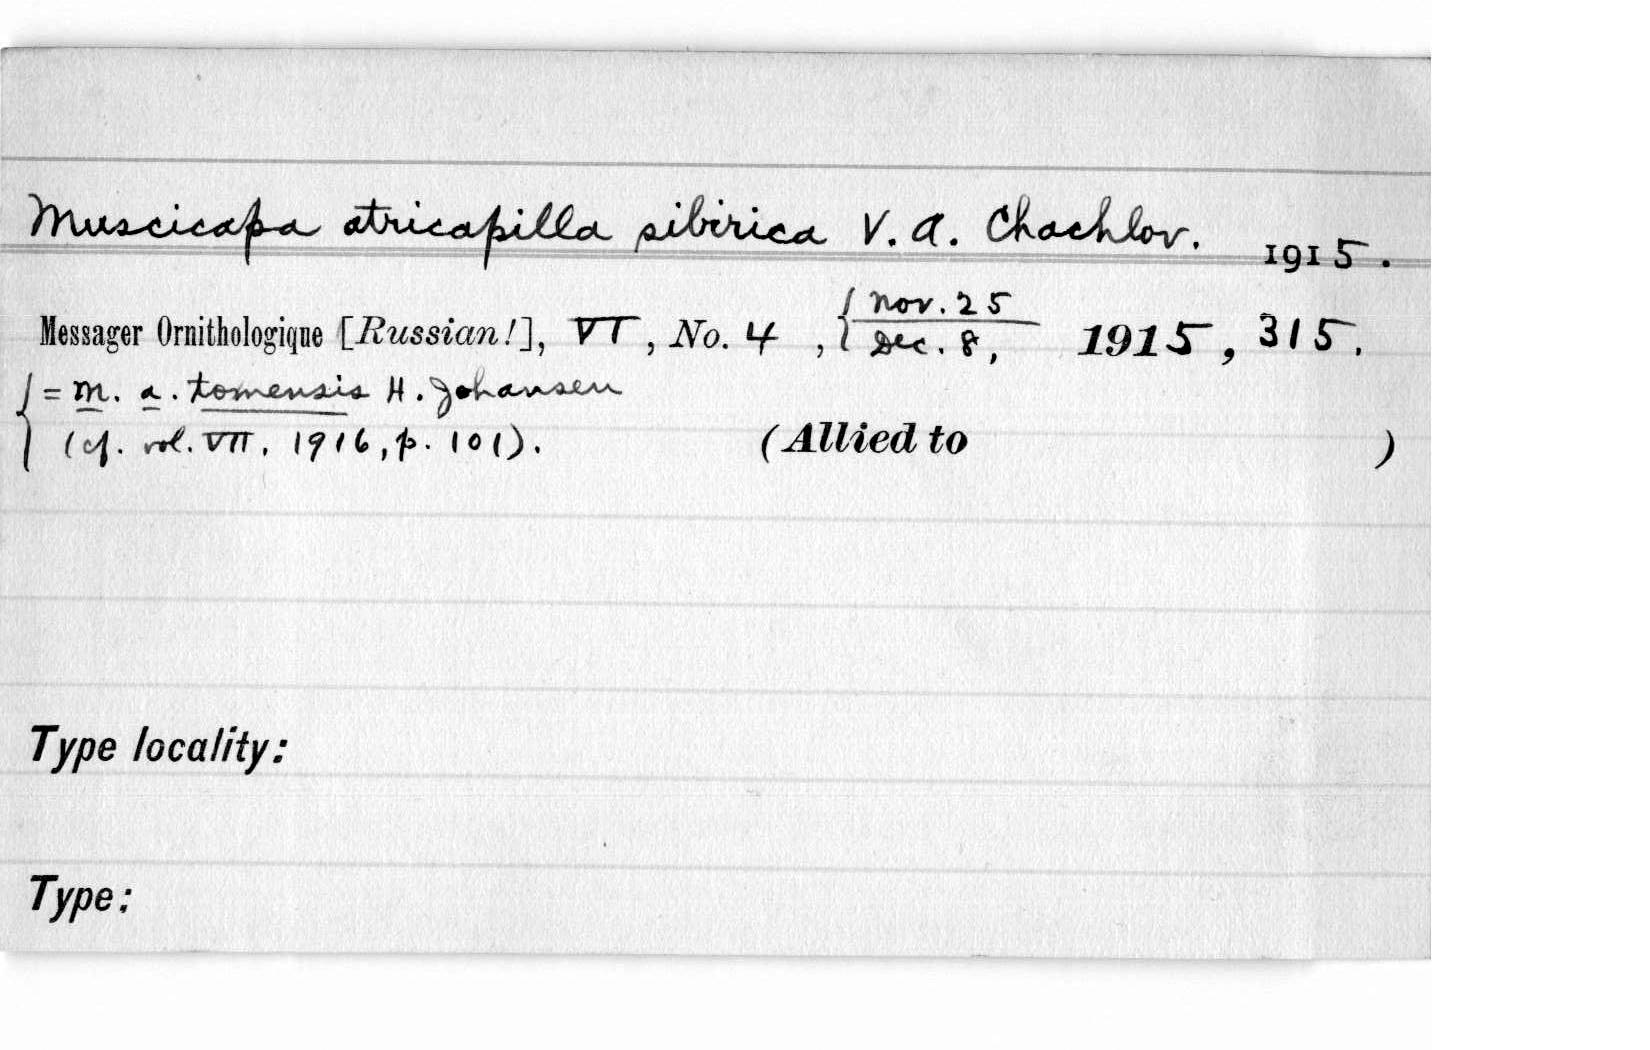 Muscicapa atricapilla sibirica V. A. Chachlov. 1915.
Messager Ornithologique [Russian!], VI, No. 4, { Nov. 25 / Dec. 8, 1915, 315.
{ = M. a. tomensis H. Johansen
(cf. vol. VII, 1916, p. 101). (Allied to )
Type locality:
Type: